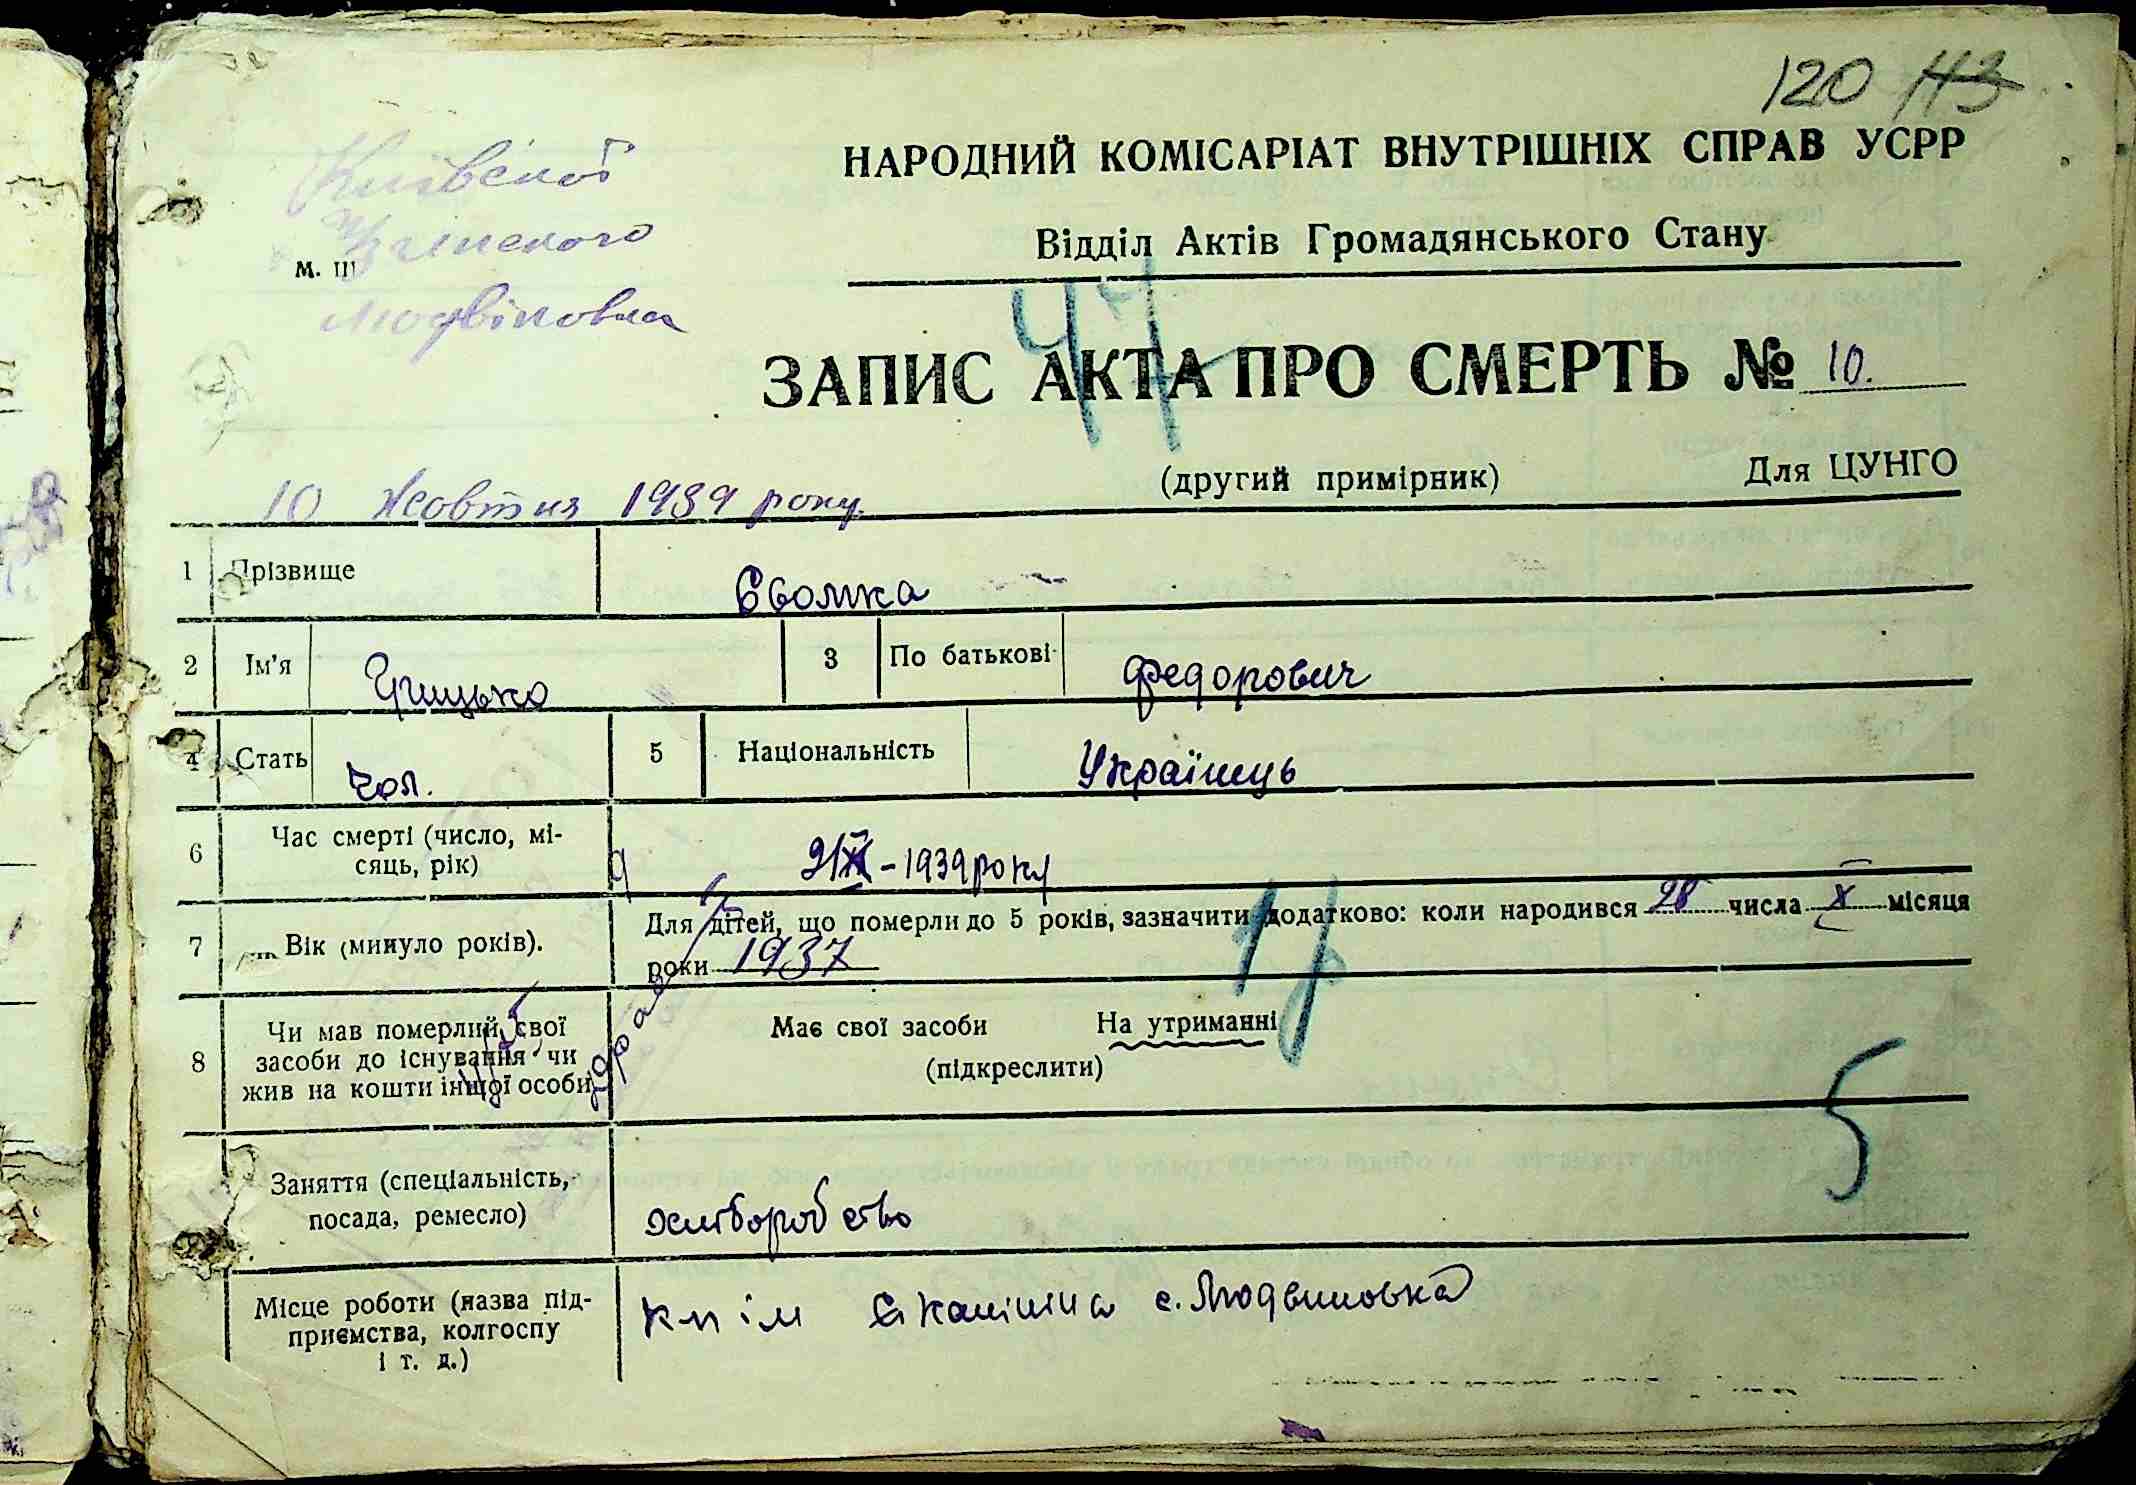 120 113
Київської
НАРОДНИЙ КОМІСАРІАТ ВНУТРІШНІХ СПРАВ УСРР
Відділ Актів Громадянського Стану
м. Ш
Людвіновка
44
ЗАПИС АКТА ПРО СМЕРТЬ № 10.
(другий примірник) Для ЦУНГО
10 жовтня 1939 року.
1 Прізвище Євомка
2 Ім'я Грицько 3 По батькові Федорович
4 Стать Чол. 5 Національність Українець
6 Час смерті (число, мі-
сяць, рік) 9 -1939 року
7 Вік (минуло років). Для дітей, що померли до 5 років, зазначити додатково: коли народився 28 числа X місяця
роки 1937
8 Чи мав померлий свої
засоби до існування чи
жив на кошти іншої особи
Має свої засоби На утриманні
(підкреслити)
5
Заняття (спеціальність,
посада, ремесло) хліборобство
Місце роботи (назва під-
приємства, колгоспу
і т. д.)
к-п ім с. Людвиновка